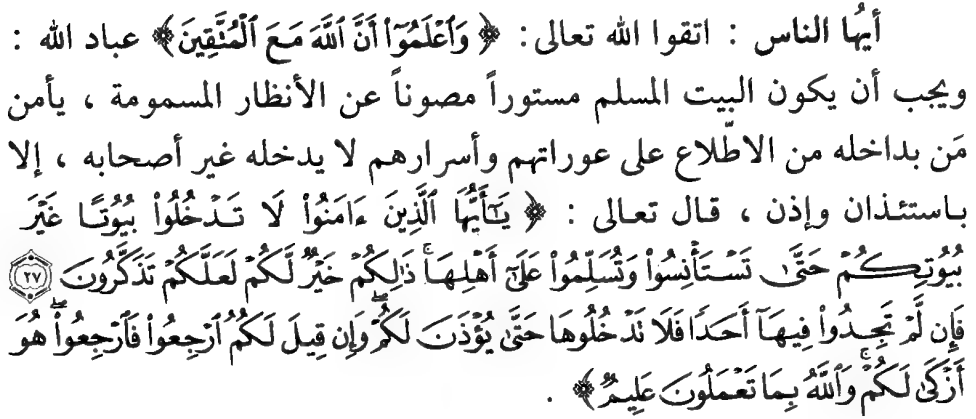 أيُّها الناس : اتقوا الله تعالى : ﴿ وَٱعْلَمُوٓا۟ أَنَّ ٱللَّهَ مَعَ ٱلْمُتَّقِينَ﴾ عباد الله :
ويجب أن يكون البيت المسلم مستوراً مصوناً عن الأنظار المسمومة ، يأمن
مَن بداخله من الاطّلاع على عوراتهم وأسرارهم لا يدخله غير أصحابه ، إلا
باستئذان وإذن ، قال تعالى : ﴿ يَٰٓأَيُّهَا ٱلَّذِينَ ءَامَنُوا۟ لَا تَدْخُلُوا۟ بُيُوتًا غَيْرَ
بُيُوتِكُمْ حَتَّىٰ تَسْتَأْنِسُوا۟ وَتُسَلِّمُوا۟ عَلَىٰٓ أَهْلِهَا ۚ ذَٰلِكُمْ خَيْرٌ لَّكُمْ لَعَلَّكُمْ تَذَكَّرُونَ ۝٢٧
فَإِن لَّمْ تَجِدُوا۟ فِيهَآ أَحَدًا فَلَا تَدْخُلُوهَا حَتَّىٰ يُؤْذَنَ لَكُمْ ۖ وَإِن قِيلَ لَكُمُ ٱرْجِعُوا۟ فَٱرْجِعُوا۟ ۖ هُوَ
أَزْكَىٰ لَكُمْ ۚ وَٱللَّهُ بِمَا تَعْمَلُونَ عَلِيمٌ﴾ .